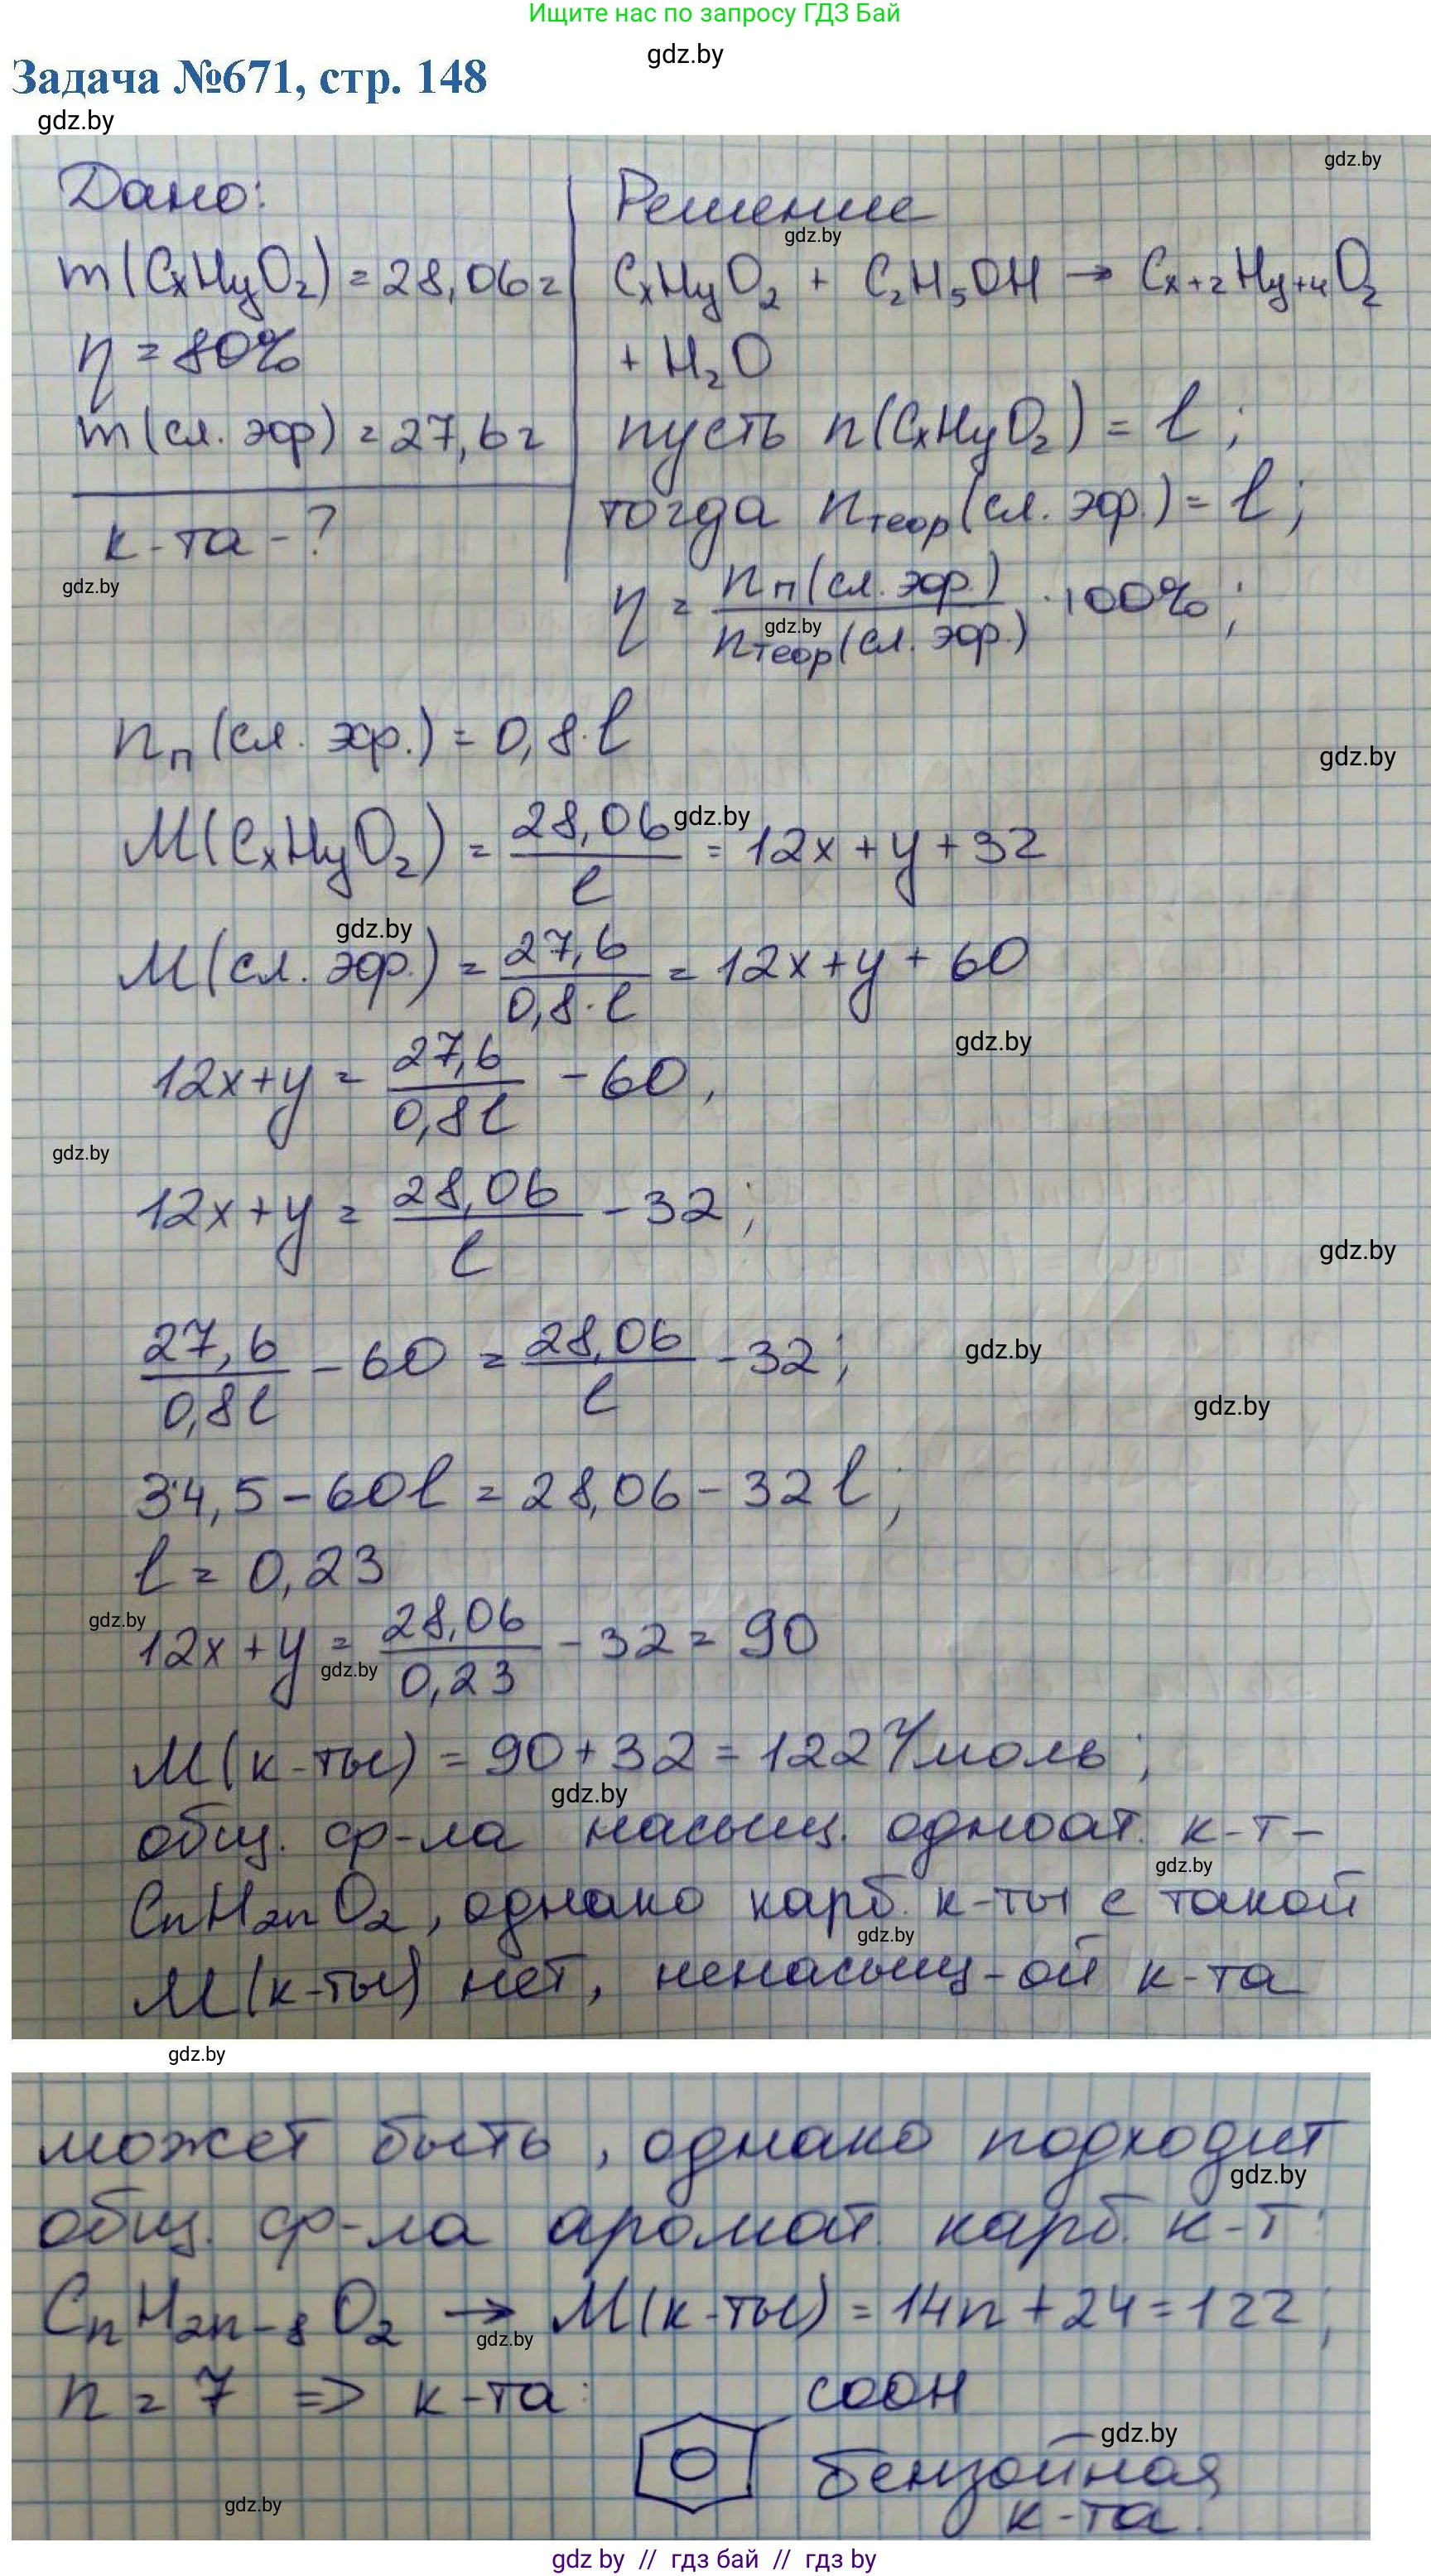 Ищите нас по запросу ГДЗ Бай
gdz.by
Задача №671, стр. 148
gdz.by
gdz.by
Дано:
Решение
gdz.by
m(CxHyO₂) = 28,06 г
CxHyO₂ + C₂H₅OH → Cx+2Hy+4O₂
η = 80%
+ H₂O
m(сл. эфр) = 27,6 г
пусть n(CxHyO₂) = l;
тогда nтеор(сл. эфр.) = l;
к-та - ?
gdz.by
η = nп(сл. эфр.) / nтеор(сл. эфр.) · 100%;
gdz.by
nп (сл. эфр.) = 0,8·l
gdz.by
M(CxHyO₂) = 28,06 / l = 12x + y + 32
gdz.by
gdz.by
M(сл. эфр.) = 27,6 / 0,8·l = 12x + y + 60
gdz.by
12x + y = 27,6 / 0,8l - 60,
gdz.by
12x + y = 28,06 / l - 32;
gdz.by
27,6 / 0,8l - 60 = 28,06 / l - 32;
gdz.by
gdz.by
34,5 - 60l = 28,06 - 32l;
l = 0,23
gdz.by
12x + y = 28,06 / 0,23 - 32 = 90
gdz.by
M(к-ты) = 90 + 32 = 122 г/моль;
gdz.by
общ. ф-ла насыщ. одноат. к-т -
gdz.by
CnH2nO₂, однако карб. к-ты с такой
gdz.by
M(к-ты) нет, ненасыщ-ой к-та
gdz.by
может быть, однако подходит
gdz.by
общ. ф-ла аромат. карб. к-т:
CnH2n-8O₂ → M(к-ты) = 14n + 24 = 122;
gdz.by
n = 7 => к-та:
COOH
gdz.by
бензойная
к-та.
gdz.by
gdz by // гдз бай // гдз by